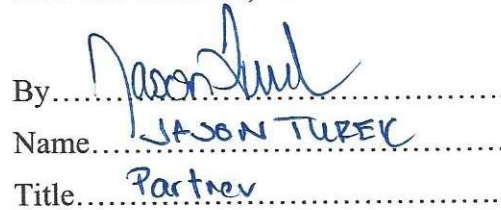 By.... Jason Turek
Name.... JASON TUREK
Title.... Partner